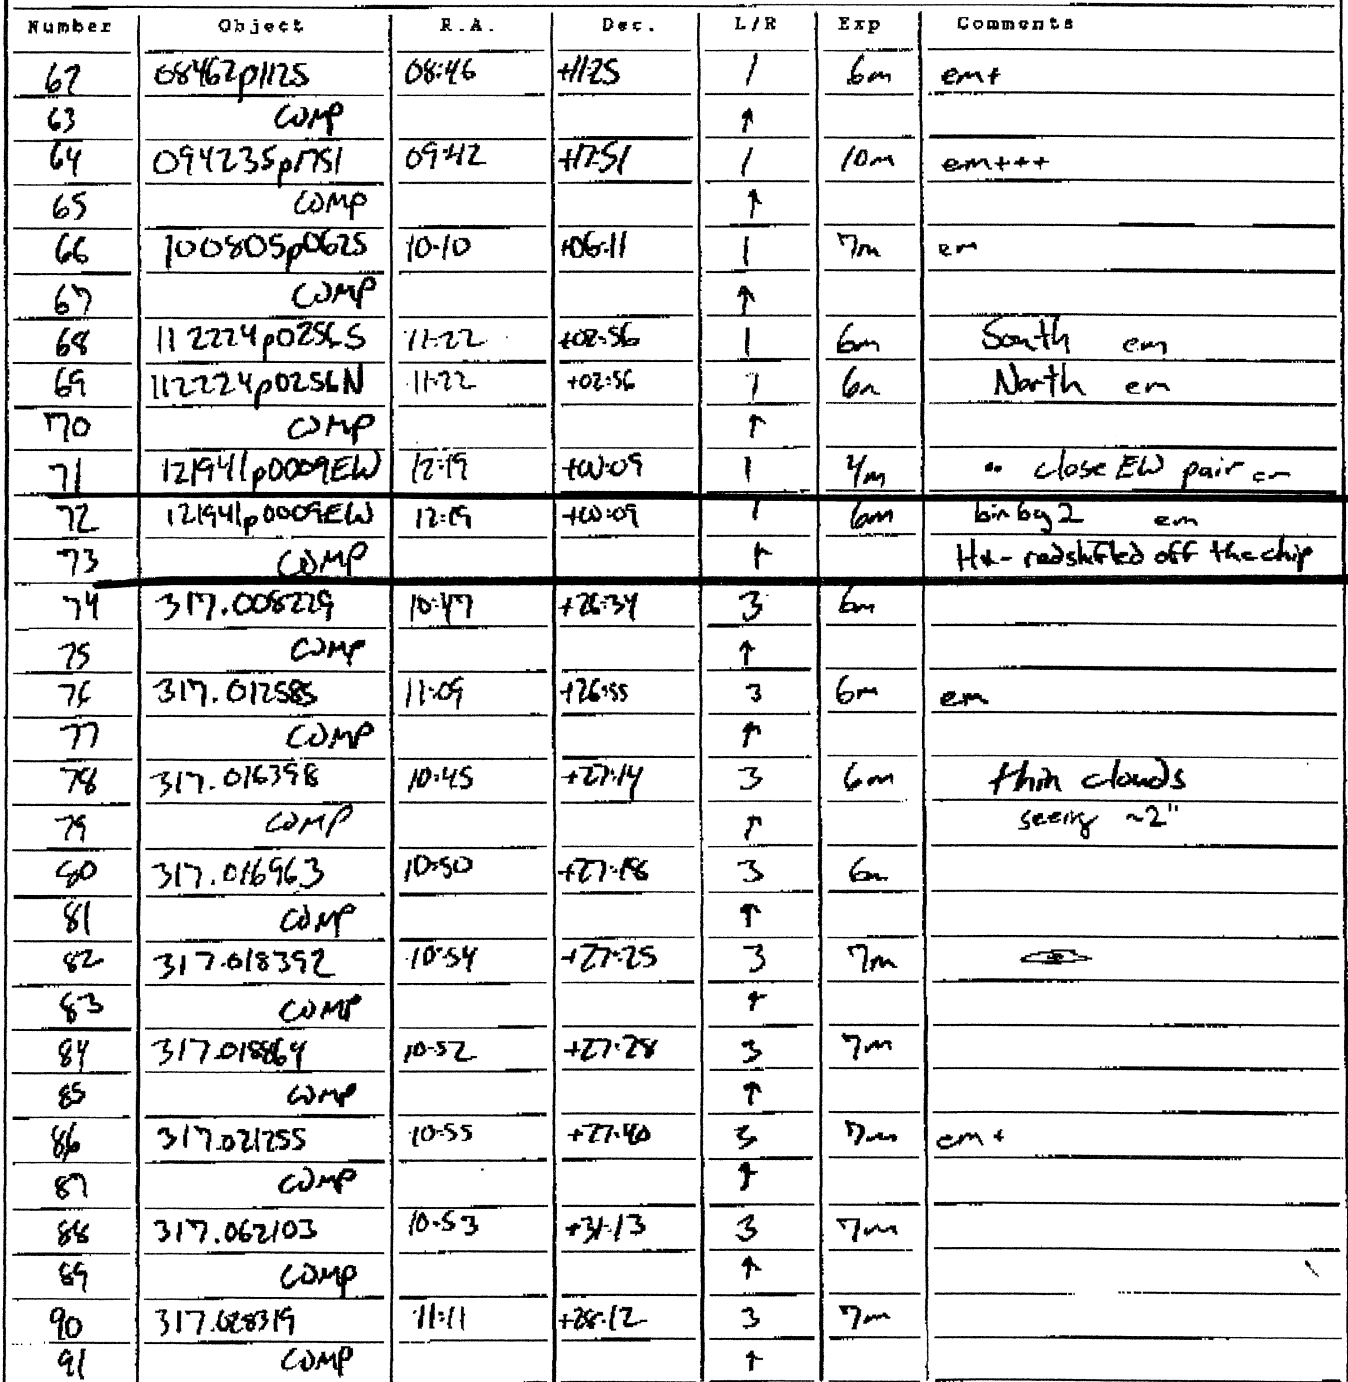 Number Object R.A. Dec. L/R Exp Comments
62 08462p1125 08:46 +11:25 1 6m em+
63 COMP ↑
64 094235p1751 09:42 +17:51 1 10m em+++
65 COMP ↑
66 100805p0625 10:10 +06:11 1 7m em
67 COMP ↑
68 112224p0256S 11:22 +02:56 1 6m South em
69 112224p0256N 11:22 +02:56 1 6m North em
70 COMP ↑
71 121941p0009EW 12:19 +00:09 1 4m •• close EW pair em
72 121941p0009EW 12:19 +00:09 1 6m bin by 2 em
73 COMP ↑ Hα - redshifted off the chip
74 317.008229 10:47 +26:34 3 6m
75 COMP ↑
76 317.012585 11:09 +26:55 3 6m em
77 COMP ↑
78 317.016398 10:45 +27:14 3 6m thin clouds
79 COMP ↑ seeing ~2"
80 317.016963 10:50 +27:18 3 6m
81 COMP ↑
82 317.018392 10:54 +27:25 3 7m
83 COMP ↑
84 317.018864 10:52 +27:28 3 7m
85 COMP ↑
86 317.021255 10:55 +27:40 3 7m em+
87 COMP ↑
88 317.062103 10:53 +31:13 3 7m
89 COMP ↑
90 317.028319 11:11 +28:12 3 7m
91 COMP ↑